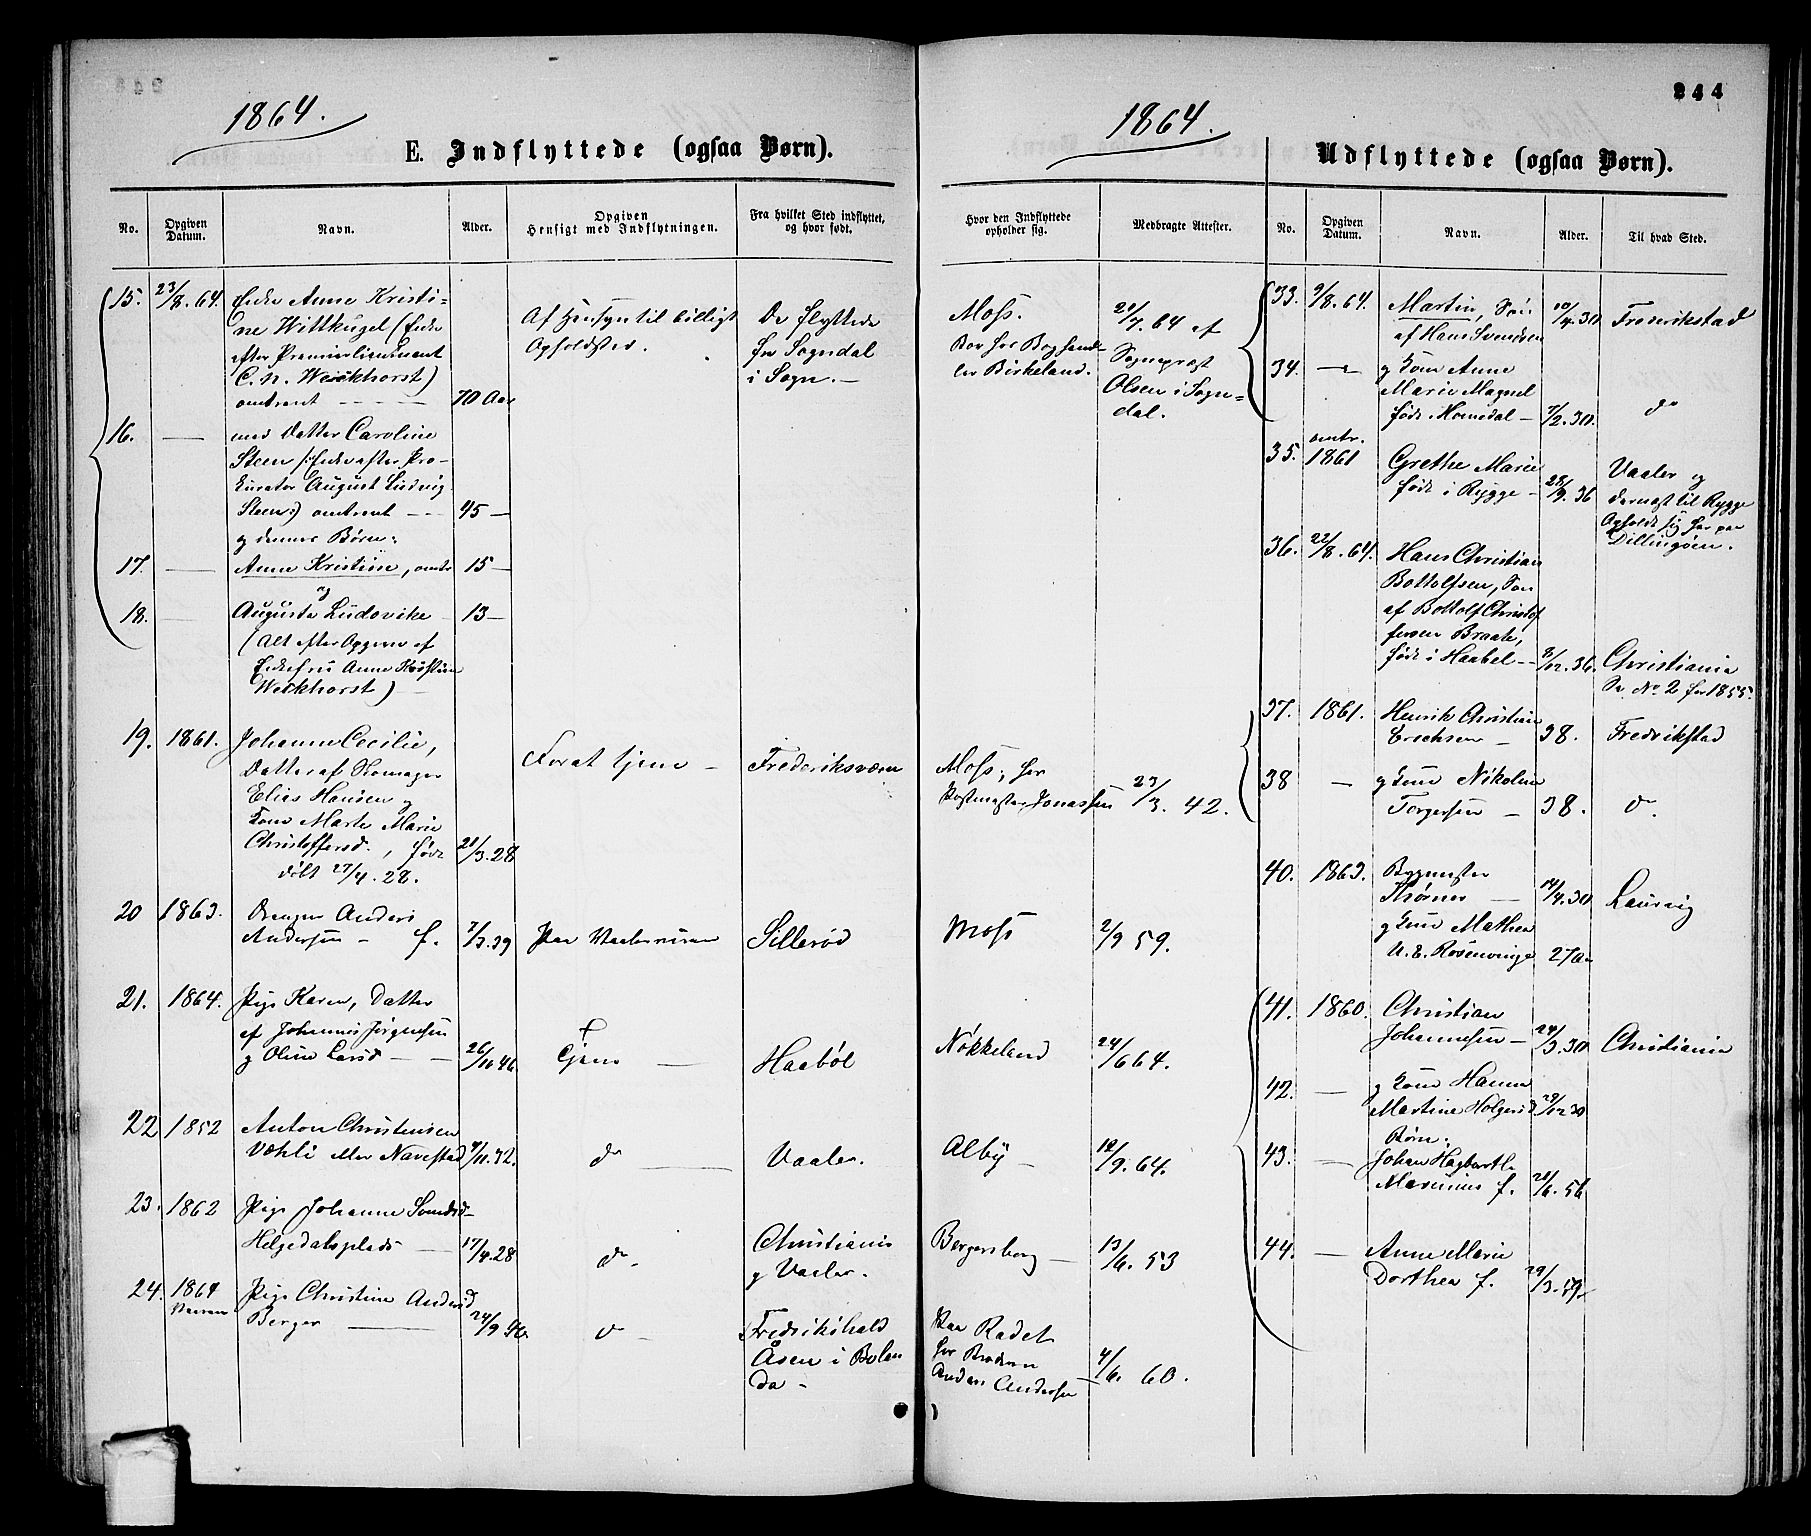 244
1864.
E. Indflyttede (ogsaa Børn).
No.
Opgiven Datum.
Navn.
Alder.
Opgiven Hensigt med Indflytningen.
Fra hvilket Sted indflyttet, og hvor født.
15. 23/8.64. Enke Anne Kristi-
ne Wittkugel (Enke
efter Premierlieutenant
C. N. Weickhorst)
omtrent - - - - 70 Aar
Af Hensyn til billigt
Opholdsted.
De flyttede
fra Sogndal
i Sogn. -
16. — med Datter Caroline
Steen (: Enke efter Pro-
kurator August Ludvig
Steen:) omtrent - - 45 -
og dennes Børn:
17. — Anne Kristine, omtr 15 -
og
18. — Augusta Ludovike 13 -
(Alt efter Opgave af
Enkefru Anne Kristine
Weickhorst) -
19. 1861. Johanne Cecilie,
Datter af
Elias Hansen og
Kone Marte Marie
Christoffersd., født 21/3.28
døbt 27/4.28.
For at tjene - Frederiksværn
20 1863. Drengen Anders
Andersen - f. 7/3.39 Paa Sillerød
21. 1864. Pige Karen, Datter
af Johannes Jørgensen
og Oline Larsd - - 26/10 46 Tjene — Haabøl
22 1852 Anton Christensen
Væhli eller Navestad 4/11.32. do — Vaaler.
23. 1862 Pige Johanne
Helgedalsplads — 17/4.28 do - Christiania
og Vaaler.
24. 1864 Pige Christine Andersd
Berger — 24/9 40. do - Fredrikshald
Aasen i
1864.
Hvor den Indflyttede opholder sig.
Medbragte Attester.
Moss.
Bor hos Boghand-
ler Birkeland.
21/7.64 af
Sogneprest
Olsen i Sogn-
dal.
Moss, hos
Postmester Jonassen 23/3.42.
Moss 2/9 59.
Nøkkeland 24/6 64.
Alby - 10/9.64.
Bergersborg - 13/6.53
Paa Radet
hos Broderen
Anders Andersen 4/6. 60.
Udflyttede (ogsaa Børn).
No.
Opgiven Datum.
Navn.
Alder.
Til hvad Sted.
33. 9/8.64. Martin, Søn
af Hans Svendsen 10/4.30 Frederikstad
34. — og Kone Anne
Marie Magnel
født i Homedal - 7/2.30. do
omtr.
35. 1861 Grethe Marie
født i Rygge - 28/9.36
Vaaler og
dernæst til Rygge
Opholdt sig her paa
Dillingøen.
36. 22/8.64. Hans Christian
Bottolfsen, Søn
af Bottolf Christof
fersen Braate,
født i Haabøl - 3/12.36. Christiania
Se No 2 for 1855.
37. 1861. Henrik Christian
Erichsen - 38. Fredrikstad
38 — og Kone Nikoline
Torgersen - 38. do.
40. 1863. Bygmester
Thørnes — 14/4.30 Laurvig
og Kone Mathea
U. E. Rosenvinge 27 Aar
41. 1860. Christian
Johannesen - 24/3.30 Christiania
42. — og Kone Hanna
Martine Holgersd 29/12 30
Børn:
43. — Johan Hagbarth
f. 21/6.56
44. — Anne Marie
Dorthea f. 29/3.59.